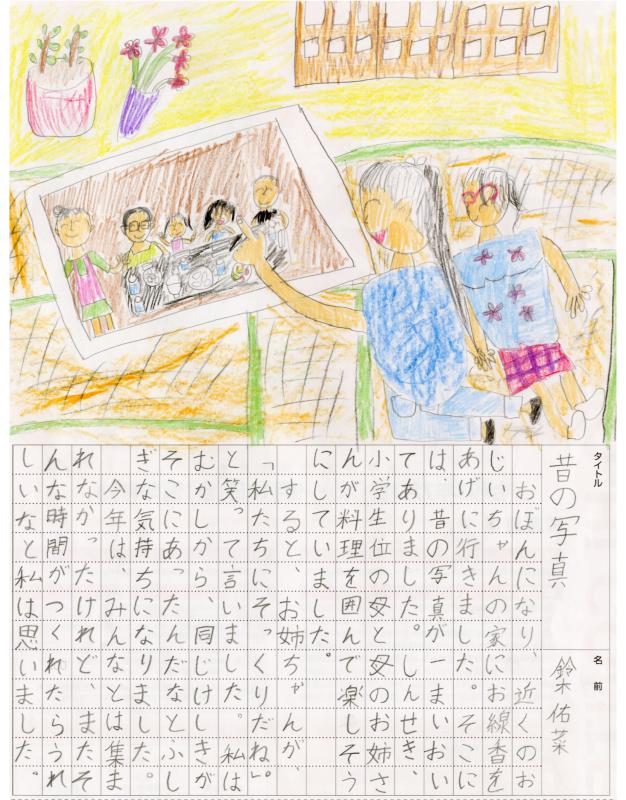 タイトル
昔の写真
名前
鈴木佑菜
おぼんになり、近くのお
じいちゃんの家にお線香を
あげに行きました。そこに
は、昔の写真が一まいおい
てありました。しんせき、
小学生位の母と母のお姉さ
んが料理を囲んで楽しそう
にしていました。
すると、お姉ちゃんが、
「私たちにそっくりだね。」
と笑って言いました。私は
むかしから、同じけしきが
そこにあったんだなとふし
ぎな気持ちになりました。
今年は、みんなとは集ま
れなかったけれど、またそ
んな時間がつくれたらうれ
しいなと私は思いました。